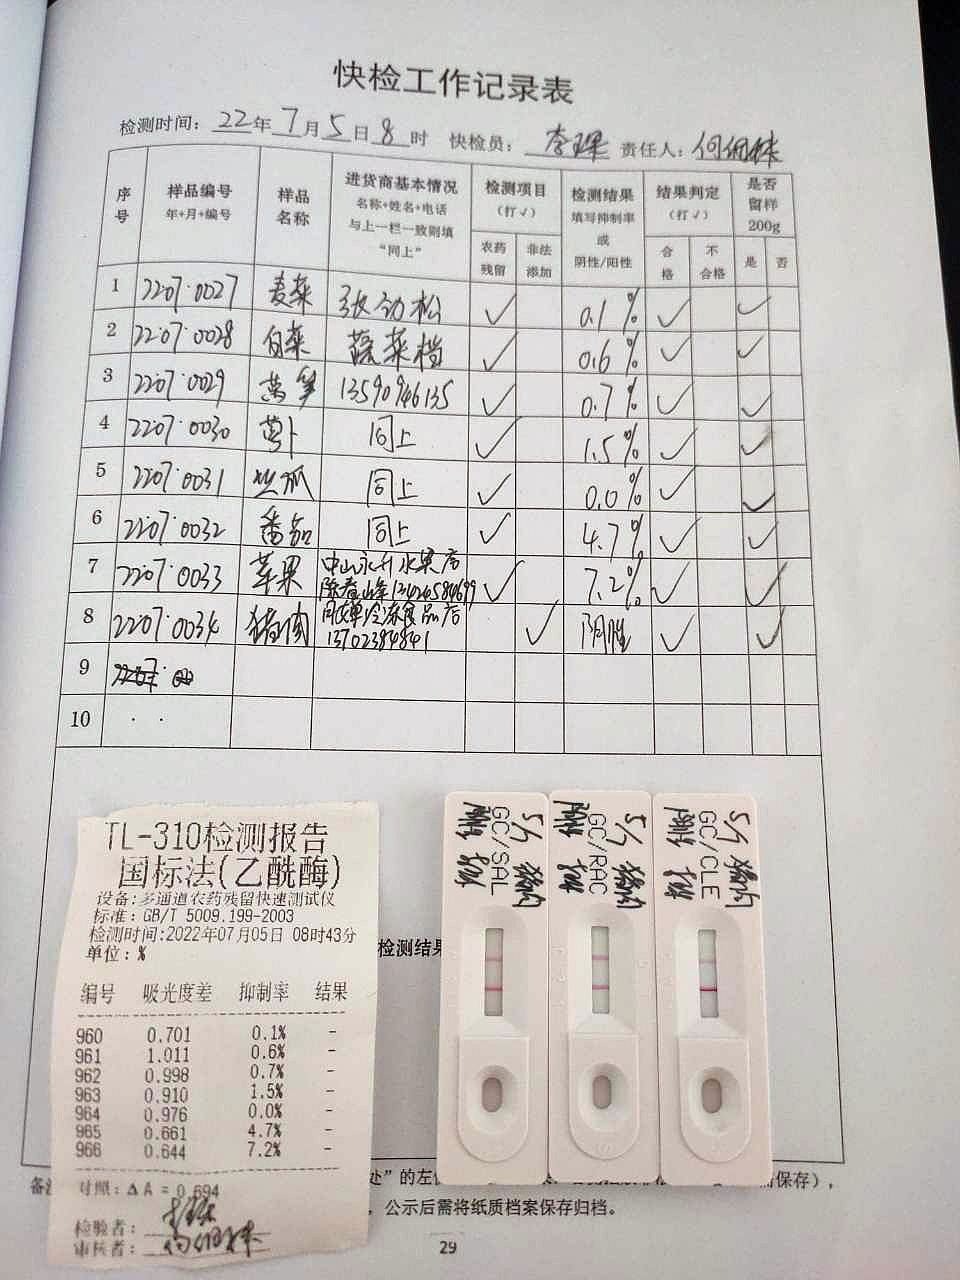 快检工作记录表
检测时间：22年7月5日8时 快检员：李琛 责任人：
序号 样品编号 年+月+编号 样品名称 进货商基本情况 名称+姓名+电话 与上一栏一致则填“同上” 检测项目（打√） 检测结果 填写抑制率或阴性/阳性 结果判定（打√） 是否留样200g
农药残留 非法添加 合格 不合格 是 否
1 2207·0027 麦菜 张劲松 √ 0.1% √ √
2 2207·0028 白菜 蔬菜档 √ 0.6% √ √
3 2207·0029 莴笋 13590946135 √ 0.7% √ √
4 2207·0030 萝卜 同上 √ 1.5% √ √
5 2207·0031 丝瓜 同上 √ 0.0% √ √
6 2207·0032 番茄 同上 √ 4.7% √ √
7 2207·0033 苹果 中山永升水果店 √ 7.2% √ √
8 2207·0034 猪肉 冷冻食品店 13702384841 √ 阴性 √ √
9
10
TL-310检测报告
国标法(乙酰酶)
设备:多通道农药残留快速测试仪
标准：GB/T 5009.199-2003
检测时间:2022年07月05日 08时43分
单位：%
编号 吸光度差 抑制率 结果
960 0.701 0.1% -
961 1.011 0.6% -
962 0.998 0.7% -
963 0.910 1.5% -
964 0.976 0.0% -
965 0.661 4.7% -
966 0.644 7.2% -
对照：ΔA = 0.694
检验者：李琛
审核者：
检测结果
5/7 猪肉
GC/SAL
阴性
5/7 猪肉
GC/RAC
阴性
5/7 猪肉
GC/CLE
阴性
备注
处”的左
保存），
，公示后需将纸质档案保存归档。
29